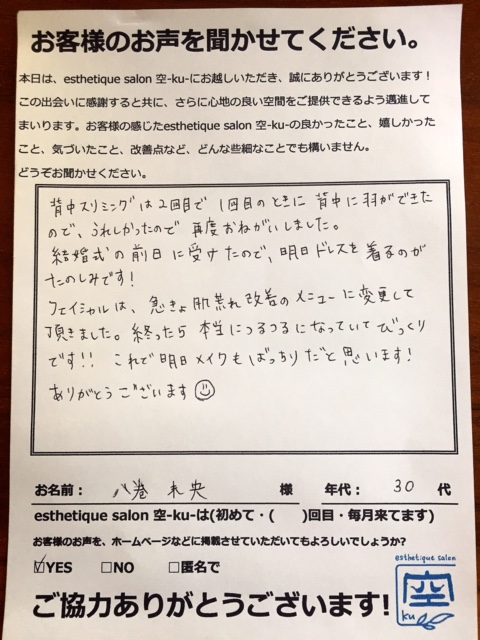 お客様のお声を聞かせてください。
本日は、esthetique salon 空-ku-にお越しいただき、誠にありがとうございます！
この出会いに感謝すると共に、さらに心地の良い空間をご提供できるよう邁進して
まいります。お客様の感じたesthetique salon 空-ku-の良かったこと、嬉しかった
こと、気づいたこと、改善点など、どんな些細なことでも構いません。
どうぞお聞かせください。
背中スリミングは2回目で1回目のときに背中に羽ができた
ので、うれしかったので再度おねがいしました。
結婚式の前日に受けたので、明日ドレスを着るのが
たのしみです！
フェイシャルは、急きょ肌荒れ改善のメニューに変更して
頂きました。終ったら本当につるつるになっていてびっくり
です!! これで明日メイクもばっちりだと思います！
ありがとうございます
お名前： 八巻 礼央 様 年代： 30 代
esthetique salon 空-ku-は(初めて・( )回目・毎月来てます)
お客様のお声を、ホームページなどに掲載させていただいてもよろしいでしょうか?
☑YES □NO □匿名で
ご協力ありがとうございます!
esthetique salon
空
ku